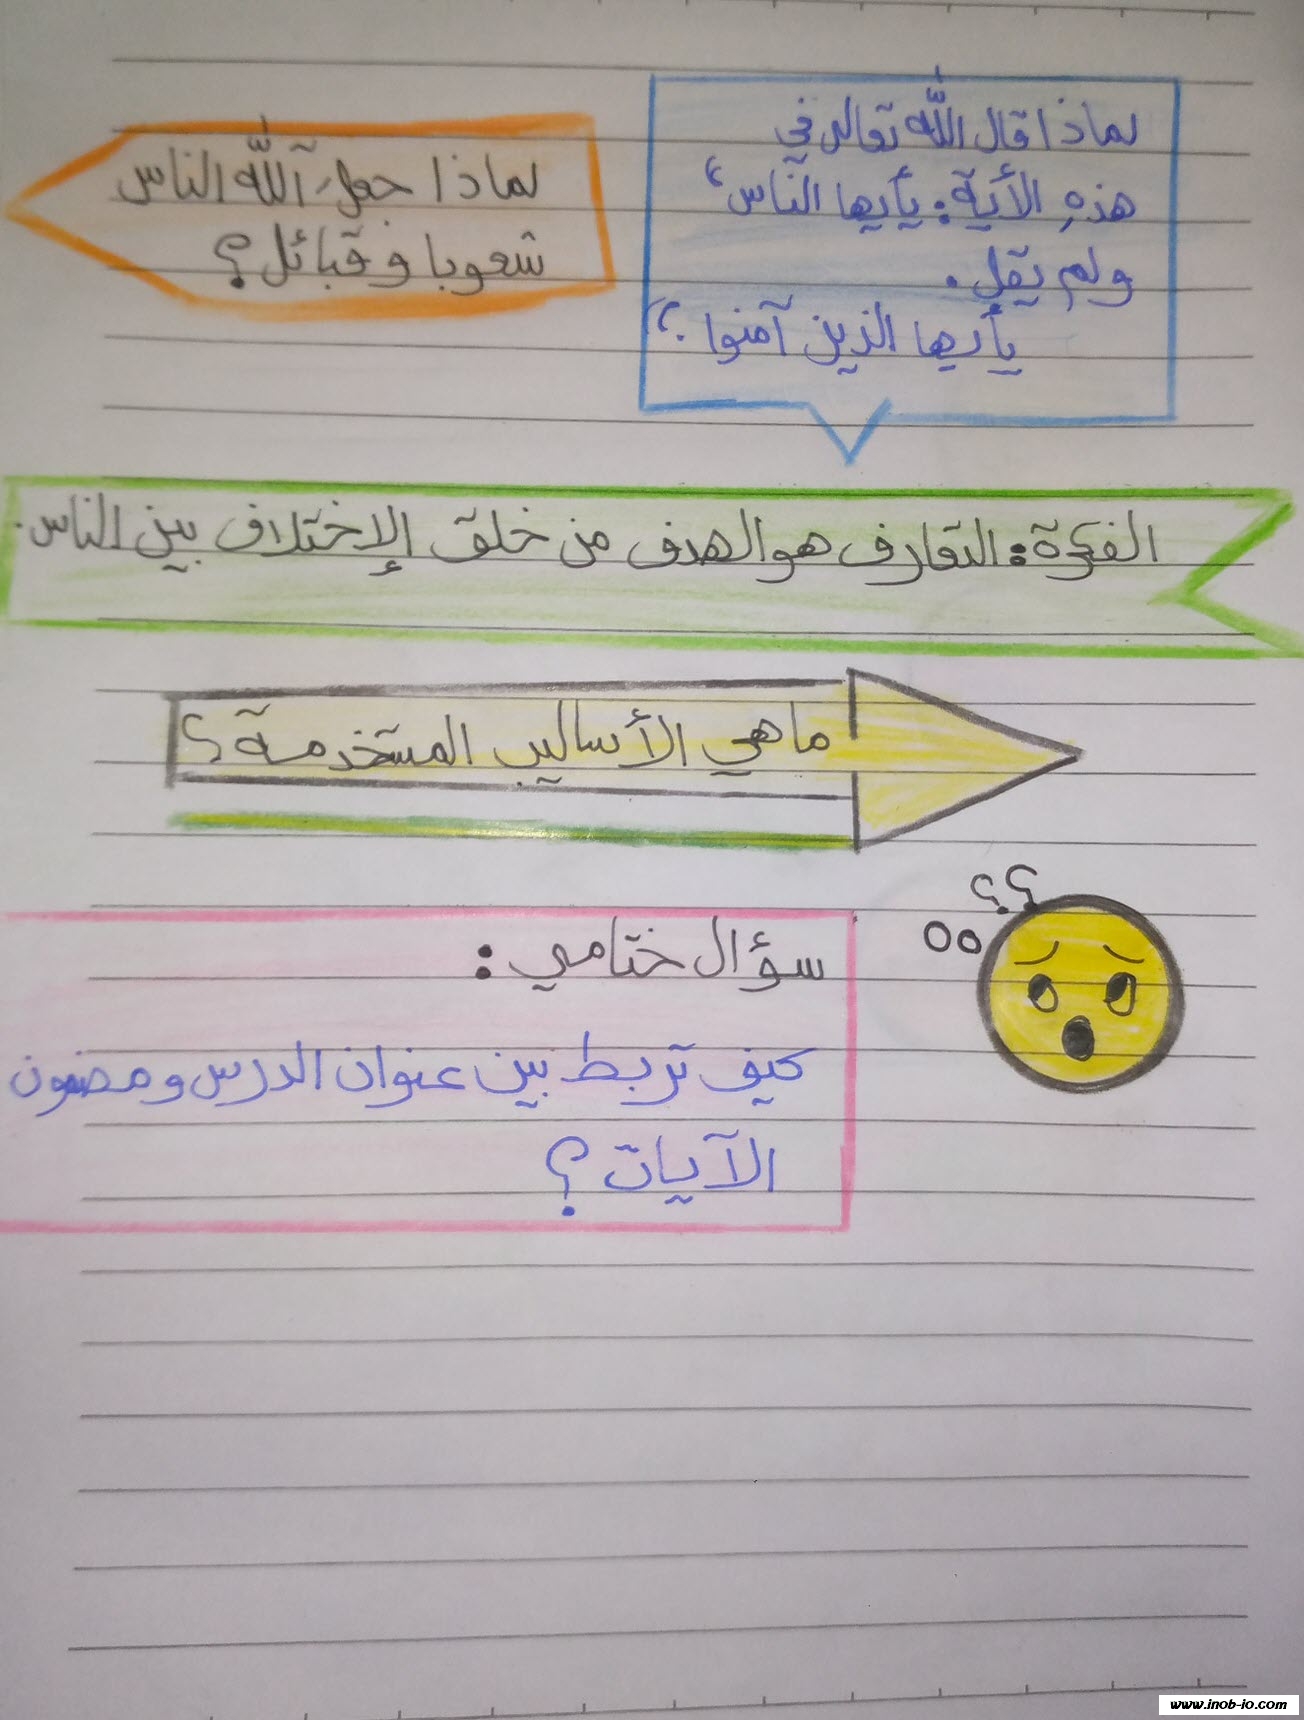 لماذا قال اللّه تعالى في
هذه الأية: يأيها النّاس،
ولم يقل.
يأيها الذين آمنوا .؟
لماذا جعل اللّه الناس
شعوبا و قبائل؟
الفكرة: التعارف هو الهدف من خلق الإختلاف بين الناس.
ما هي الأساليب المستخدمة؟
؟؟
سؤال ختامي:
كيف تربط بين عنوان الدرس ومضمون
الآيات؟
www.inob-io.com